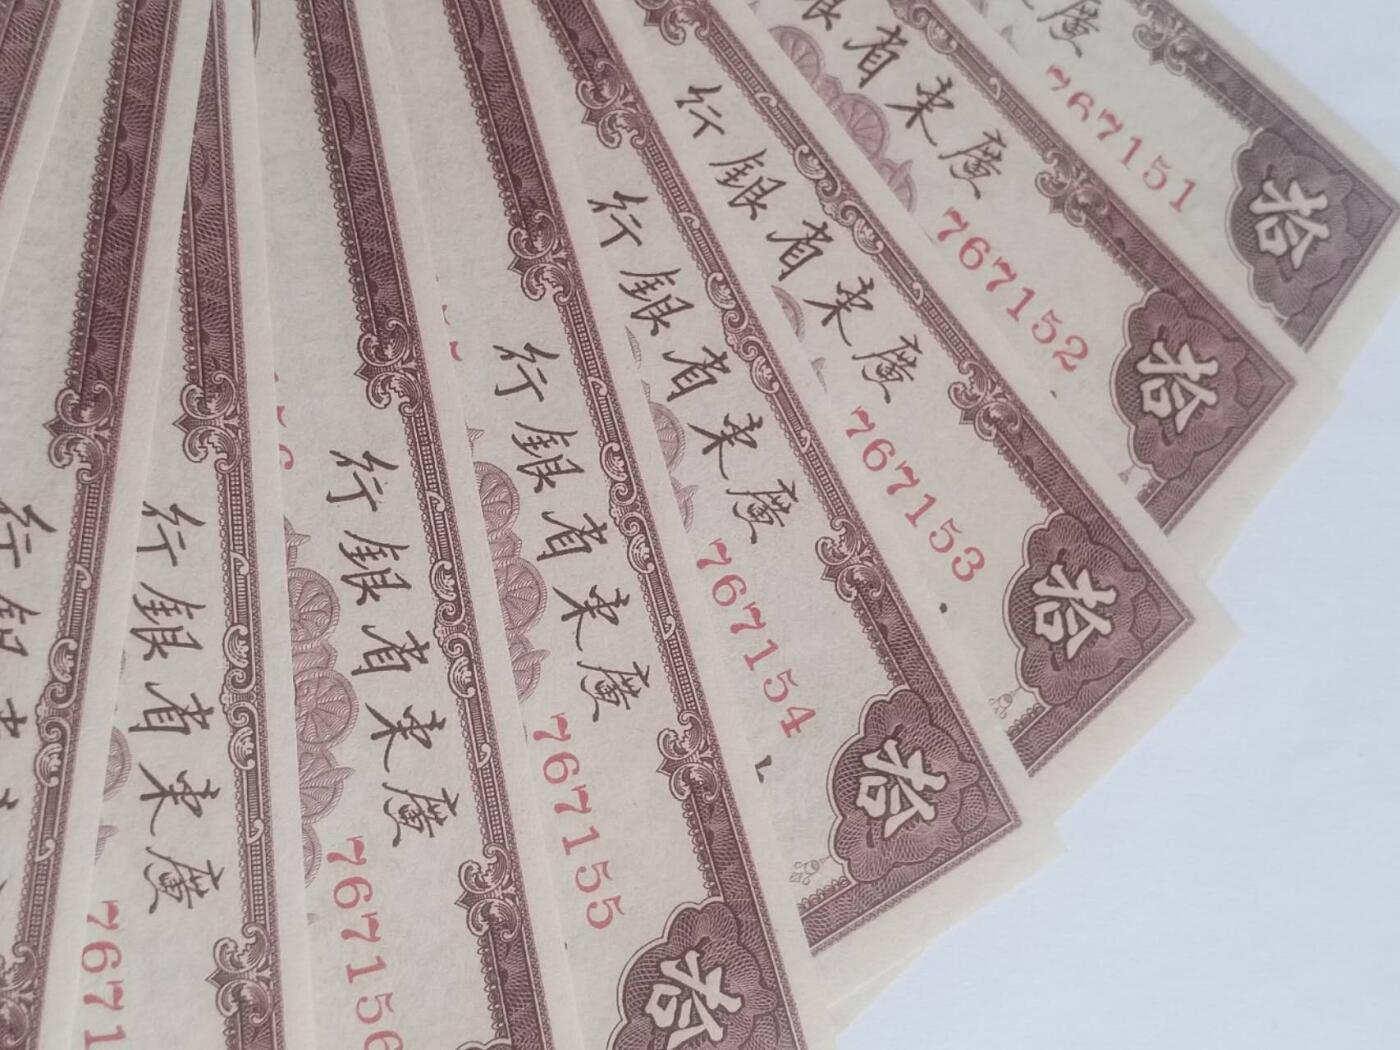 廣
767151
拾
行銀省東廣
767152
拾
行銀省東廣
767153
拾
行銀省東廣
767154
拾
行銀省東廣
767155
拾
行銀省東廣
76715
行銀省東廣
7671
行銀